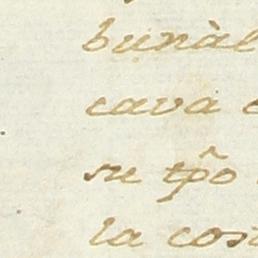 bunàl
cava
su tp̂o
la con